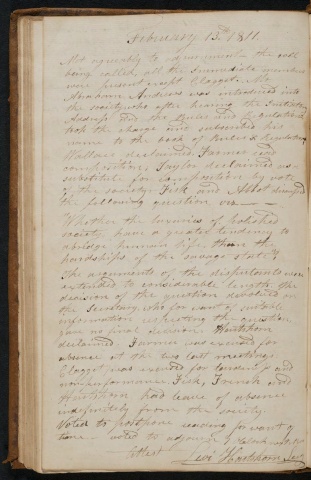 February 13th 1811.
Met agreeably to adjournment the roll
being called, all the immediate members
were present except Clogget. Mr
Abraham Andrews was introduced into
the society who after hearing the Initiatory
Address and the Rules and Regulations
took the charge and subscribed his
name to the book of Rules & Regulations
Wallace declaimed, Farmer read
composition, Taylor declaimed as a
substitute for composition by vote
of the society. Fisk and Abbot disputed
the following question viz
Whether the luxuries of polished
society, have a greater tendency to
abridge human life, than the
hardships of the savage state?
The arguments of the disputants were
extended to considerable length. the
decision of the question devolved on
the Secretary, who for want of suitable
information respecting the question
gave no final decision. Hartshorn
declaimed. Farmer was excused for
absence at the two last meetings.
Clogget was excused for tardiness and
nonperformance. Fisk, French and
Hartshorn had leave of absence
indefinitely from the society.
Voted to postpone reading for want of
time. voted to adjourn
Attest Levi Hartshorn Secy